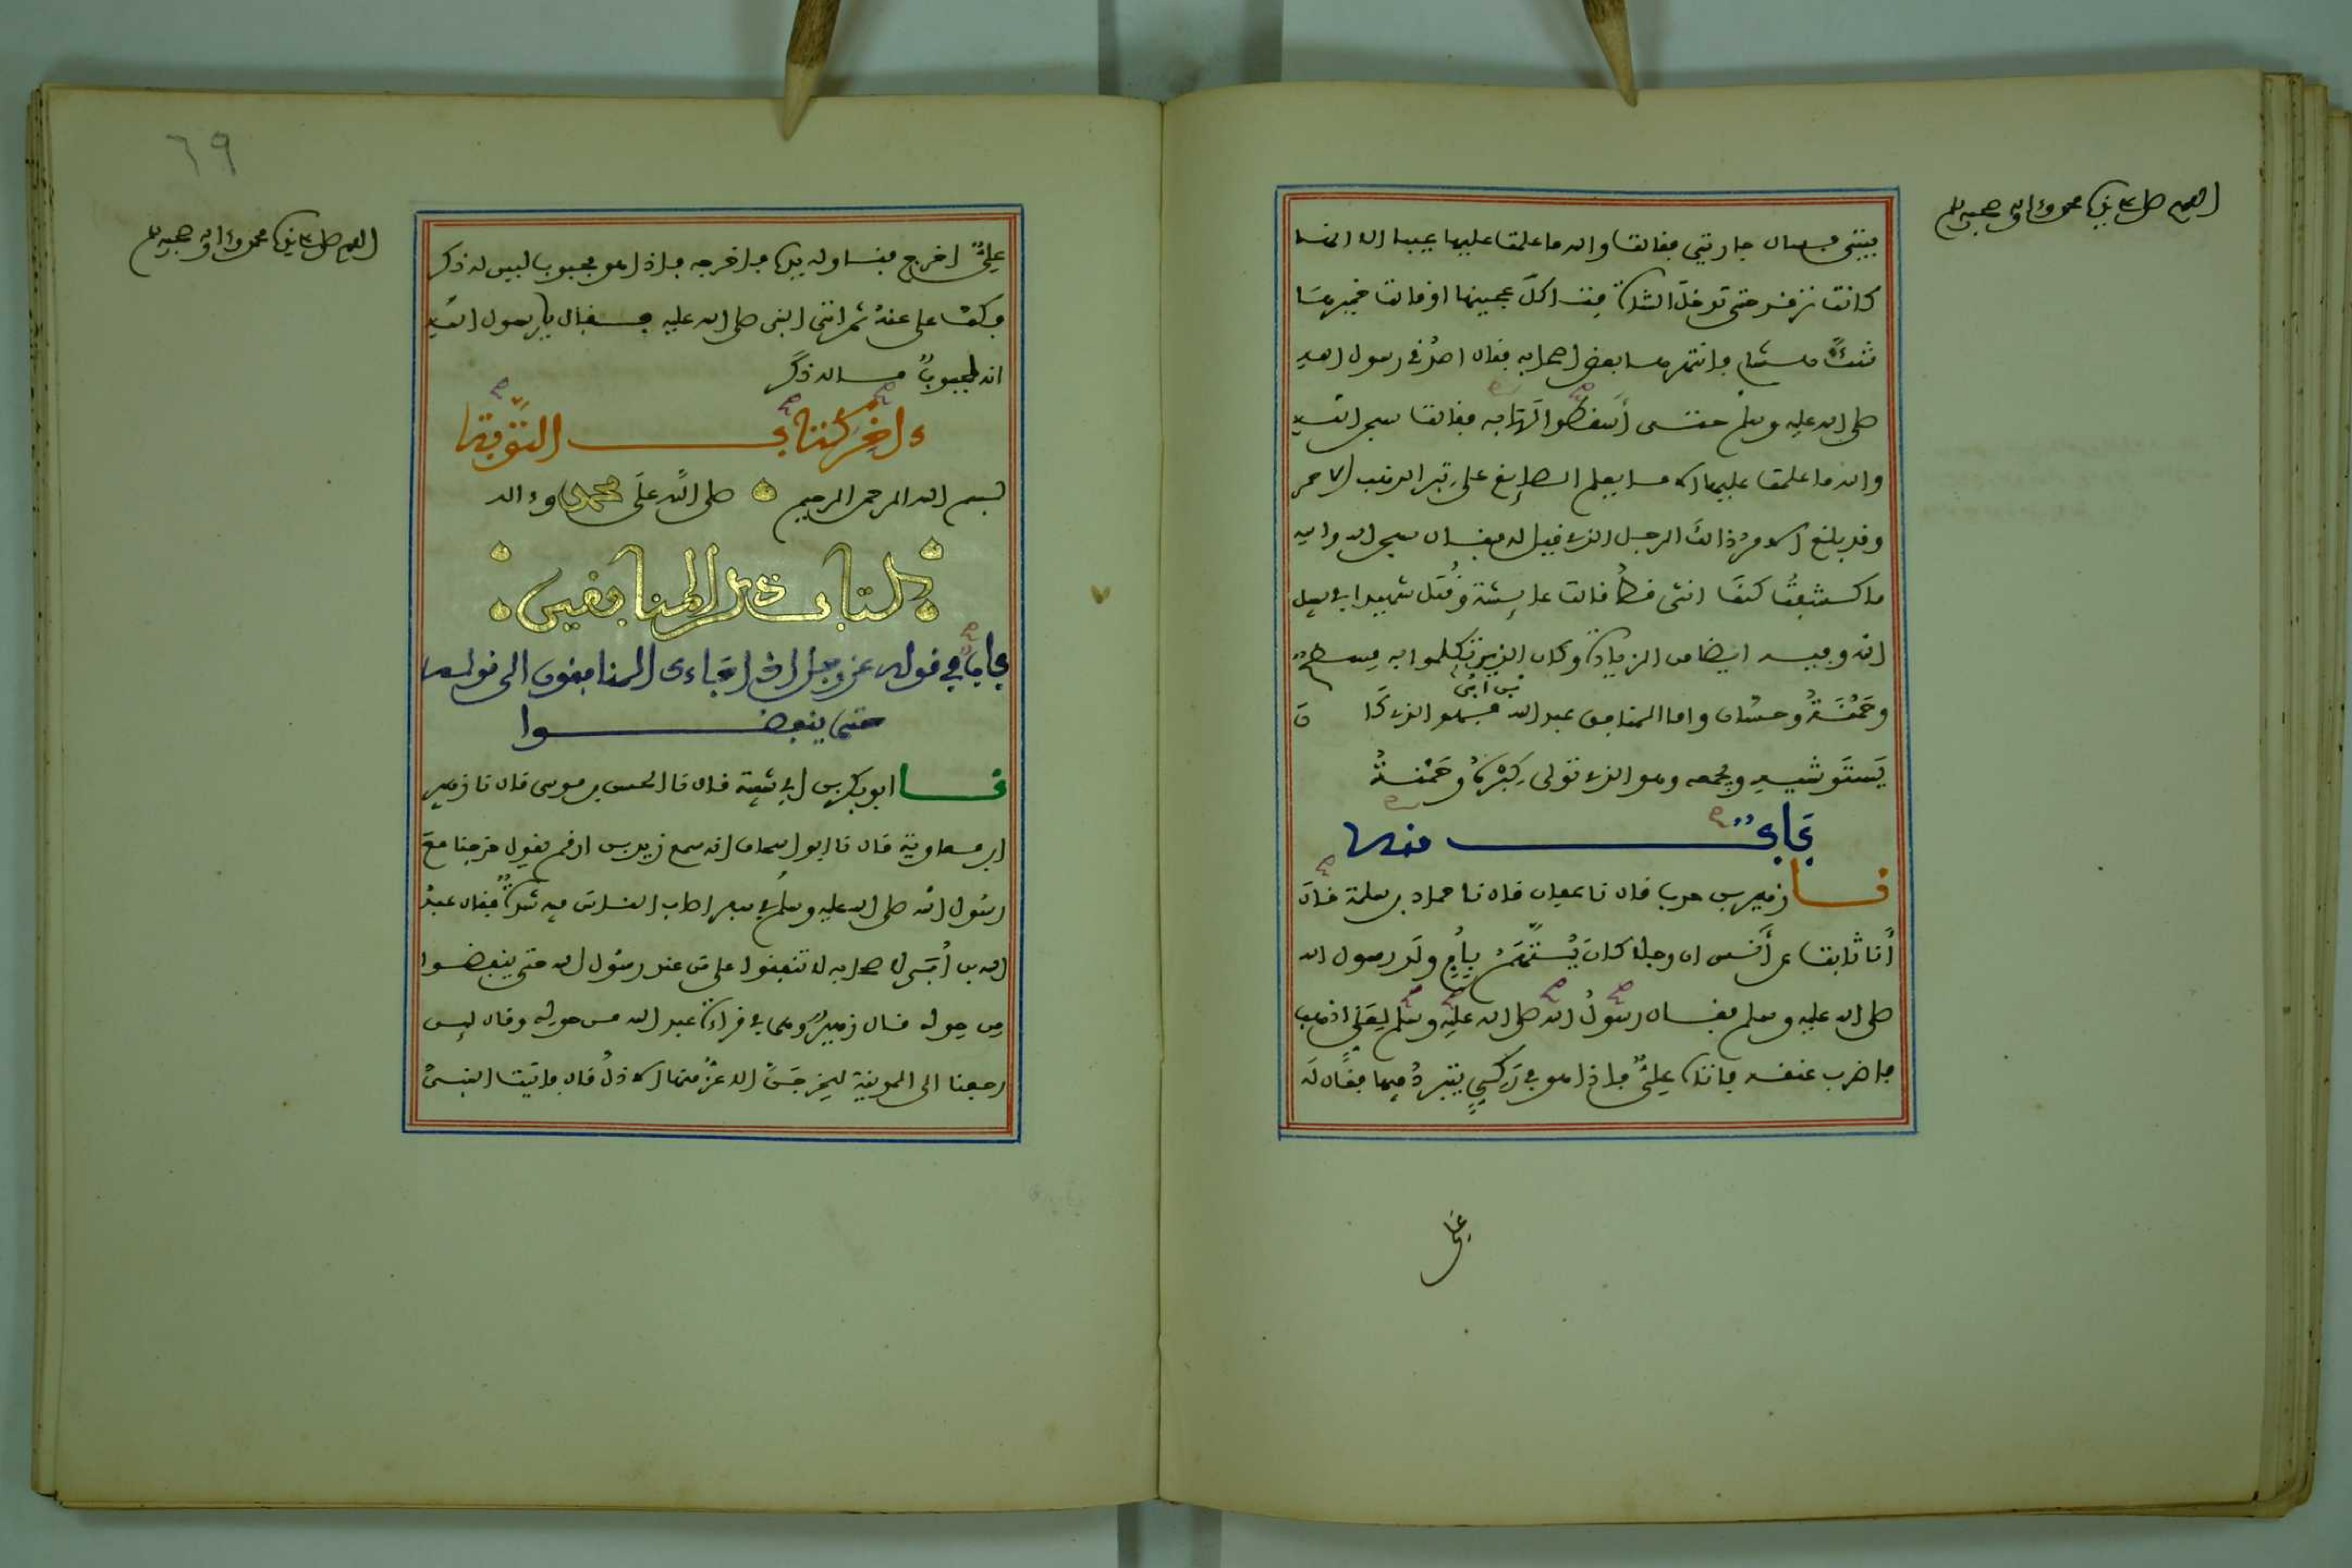 اللهم صل على نبينا محمد وءاله وصحبه وسلم
بيتي فسال جاريتي فقالت والله ما علمت عليها عيبا الا انها
كانت ترقد حتى تدخل الشاة فتاكل عجينها او قالت خميرها
شك هشام فانتهرها بعض اصحابه فقال اصدقي رسول الله
صلى الله عليه وسلم حتى أسقطوا لها به فقالت سبحن الله
والله ما علمت عليها الا ما يعلم الصايغ على تبر الذهب الاحمر
وقد بلغ الامر ذلك الرجل الذي قيل له فقال سبحن الله والله
ما كشفت كنف انثى قط قالت عايشة وقتل شهيدا في سبيل
الله وفيه ايضا من الزيادة وكان الذين تكلموا به مسطح
وحمنة وحسان واما المنافق عبد الله بن أبي فهو الذي كان
يستوشيه ويجمعه وهو الذي تولى كبره وحمنة
باب منه
نا زهير بن حرب قال نا عفان قال نا حماد بن سلمة قال
أنا ثابت عن أنس ان رجلا كان يتهم بأم ولد رسول الله
صلى الله عليه وسلم فقال رسول الله صلى الله عليه وسلم لعلي اذهب
فاضرب عنقه فاتاه علي فاذا هو في ركي يتبرد فيها فقال له
علي
٦٩
اللهم صل على نبينا محمد وءاله وصحبه وسلم
علي اخرج فناوله يده فاخرجه فاذا هو مجبوب ليس له ذكر
فكف علي عنه ثم اتى النبي صلى الله عليه فقال يا رسول الله
انه لمجبوب ما له ذكر
ءاخر كتاب التوبة
بسم الله الرحمن الرحيم صلى الله على محمد وءاله
كتاب ذكر المنافقين
باب في قوله عز وجل اذا جاءك المنافقون الى قوله
حتى ينفضوا
نا ابو بكر بن ابي شيبة قال نا الحسن بن موسى قال نا زهير
ابن معاوية قال نا ابو اسحاق انه سمع زيد بن ارقم يقول خرجنا مع
رسول الله صلى الله عليه وسلم في سفر اصاب الناس فيه شدة فقال عبد
الله بن أبي لاصحابه لا تنفقوا على من عند رسول الله حتى ينفضوا
من حوله قال زهير وهي في قراءة عبد الله من حوله وقال لين
رجعنا الى المدينة ليخرجن الاعز منها الاذل قال فاتيت النبي